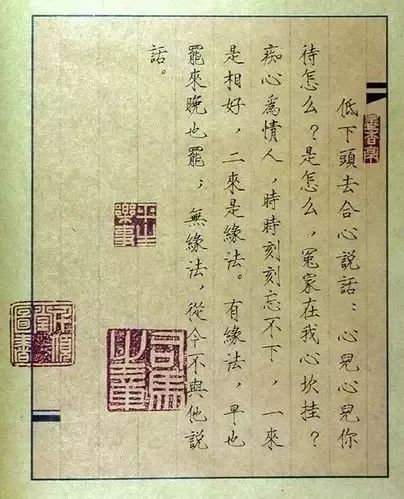 低下頭去合心說話：心兒心兒你
待怎么？是怎么，冤家在我心坎挂？
痴心爲情人，時時刻刻忘不下，一來
是相好，二來是緣法。有緣法，早也
罷來晚也罷；無緣法，從今不與他說
話。
平生樂事
司馬之章